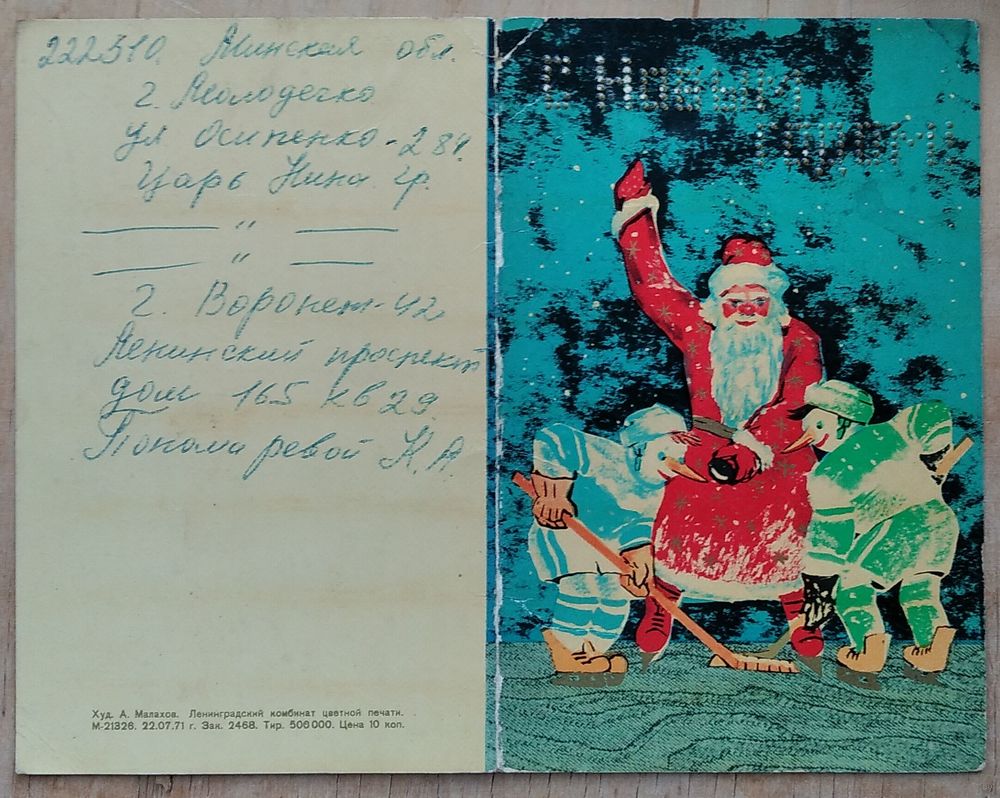 222310. Минская обл.
г. Молодечко
ул Осипенко - 2 84
Царь Нина Гр.
— " —
— " —
г. Воронеж - 42
Ленинский проспект
дом 165 кв 29
Пономаревой Н. А.
Худ. А. Малахов. Ленинградский комбинат цветной печати.
М-21326. 22.07.71 г. Зак. 2468. Тир. 500000. Цена 10 коп.
С Новым
годом!